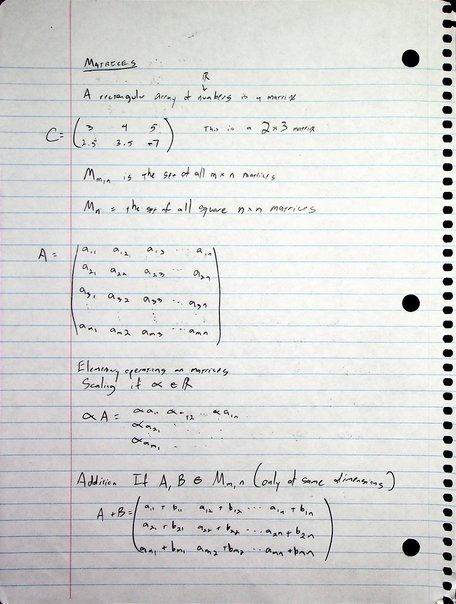 MATRICES
ℝ
↓
A rectangular array of numbers is a matrix
C = ( 3 4 5 This is a 2×3 matrix
2.5 3.5 -7 )
M m,n is the set of all m×n matrices
M n = the set of all square n×n matrices
A = ( a11 a12 a13 ... a1n
a21 a22 a23 ... a2n
a31 a32 a33 ... a3n
⋮ ⋮ ⋮ ⋮
am1 am2 am3 ... amn )
Elementary operations on matrices
Scaling if α ∈ ℝ
αA = αa11 αa12 ... αa1n
αa21 . . .
αam1 . . .
Addition If A, B ∈ M m,n (only of same dimensions)
A+B = ( a11 + b11 a12 + b12 ... a1n + b1n
a21 + b21 a22 + b22 ... a2n + b2n
am1 + bm1 am2 + bm2 ... amn + bmn )